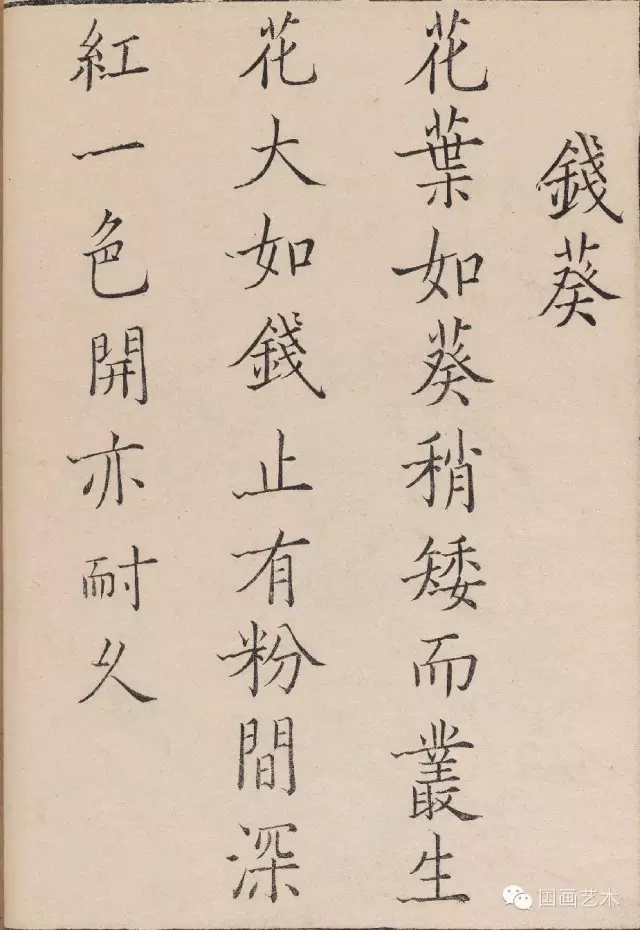 錢葵
花葉如葵稍矮而叢生
花大如錢止有粉間深
紅一色開亦耐久
国画艺术